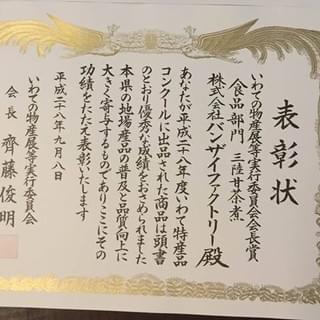 表彰状
いわての物産展等実行委員会会長賞
食品部門 三陸甘茶煮
株式会社バンザイファクトリー殿
あなたが平成二十八年度いわて特産品
コンクールに出品された商品は頭書
のとおり優秀な成績をおさめられました
本県の地場産品の普及と品質向上に
大きく寄与するものでありここにその
功績をたたえ表彰いたします
平成二十八年九月八日
いわての物産展等実行委員会
会長 齊藤俊明